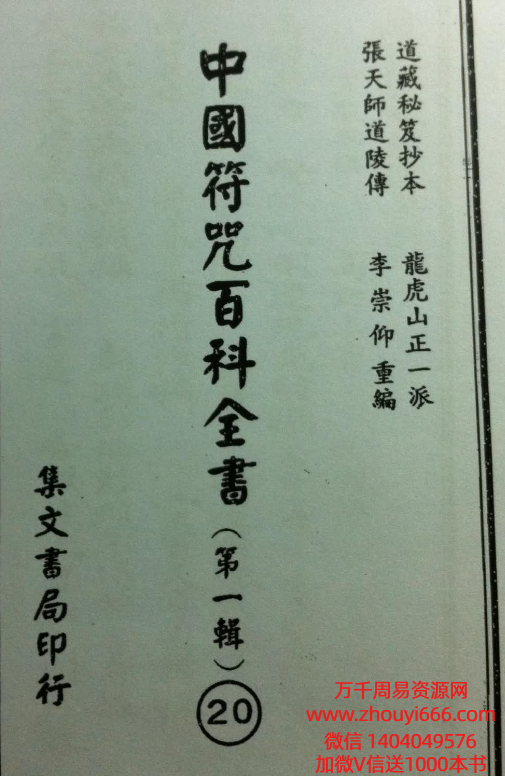 道藏秘笈抄本 龍虎山正一派
張天師道陵傳 李崇仰重編
中國符咒百科全書(第一輯)20
集文書局印行
万千周易资源网
www.zhouyi666.com
微信 1404049576
加微V信送1000本书